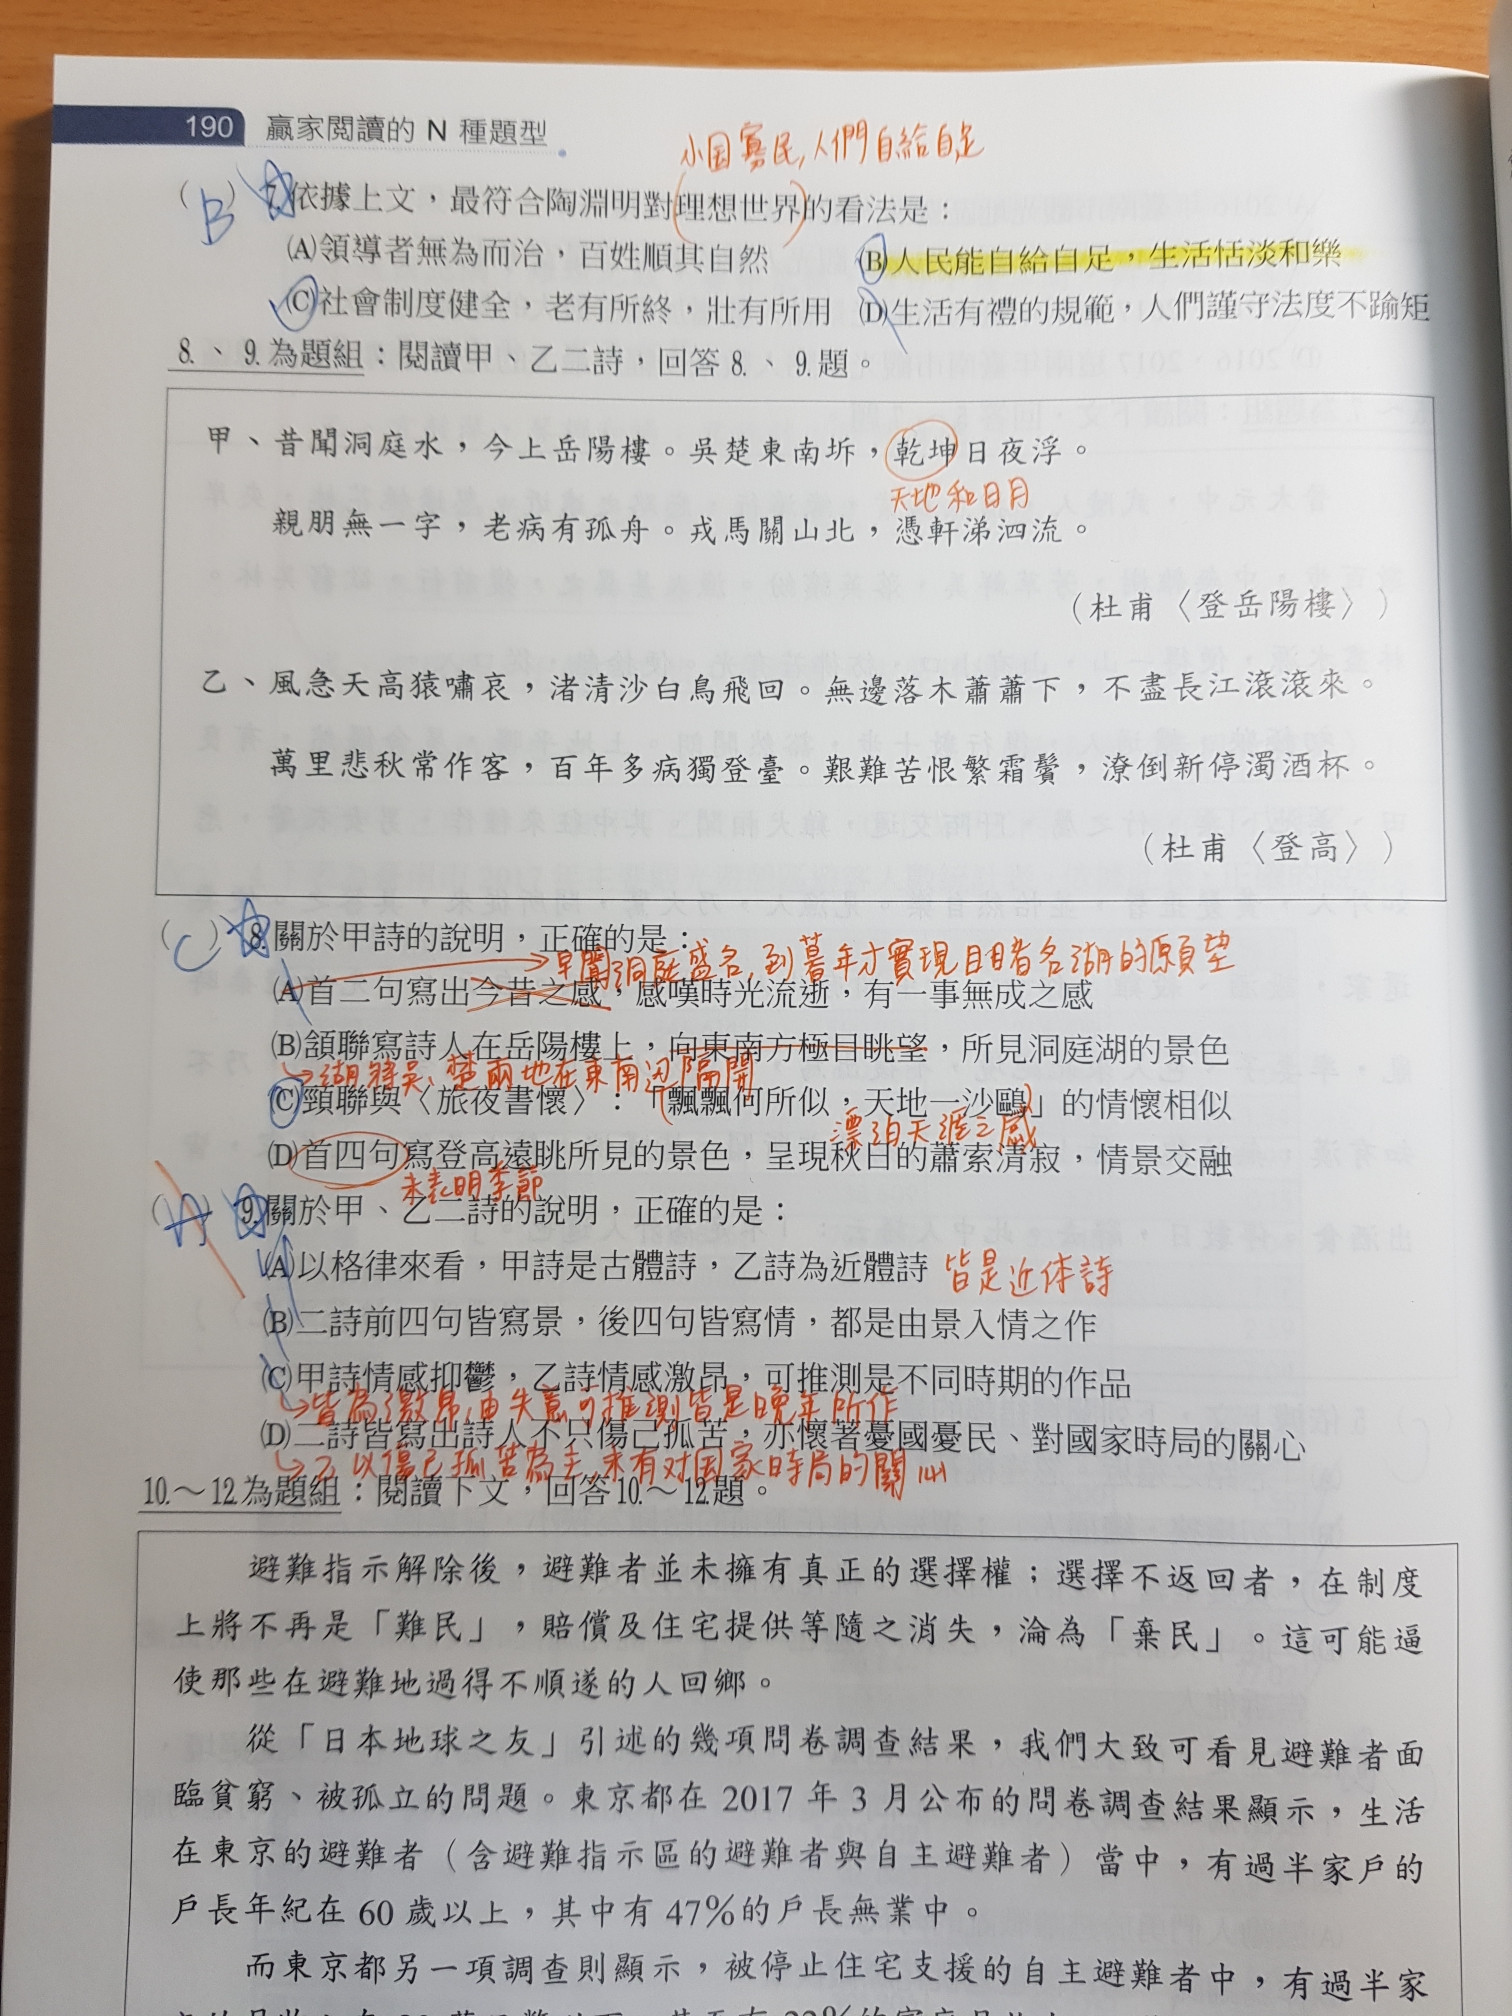 190 贏家閱讀的 N 種題型
小国寡民,人們自給自足
(B) 7.依據上文，最符合陶淵明對理想世界的看法是：
(A)領導者無為而治，百姓順其自然 (B)人民能自給自足，生活恬淡和樂
(C)社會制度健全，老有所終，壯有所用 (D)生活有禮的規範，人們謹守法度不踰矩
8.、9.為題組：閱讀甲、乙二詩，回答8.、9.題。
甲、昔聞洞庭水，今上岳陽樓。吳楚東南坼，乾坤日夜浮。
天地和日月
親朋無一字，老病有孤舟。戎馬關山北，憑軒涕泗流。
（杜甫〈登岳陽樓〉）
乙、風急天高猿嘯哀，渚清沙白鳥飛回。無邊落木蕭蕭下，不盡長江滾滾來。
萬里悲秋常作客，百年多病獨登臺。艱難苦恨繁霜鬢，潦倒新停濁酒杯。
（杜甫〈登高〉）
(C) 8.關於甲詩的說明，正確的是：
→早聞洞庭盛名,到暮年才實現目睹名湖的原望
(A)首二句寫出今昔之感，感嘆時光流逝，有一事無成之感
(B)頷聯寫詩人在岳陽樓上，向東南方極目眺望，所見洞庭湖的景色
→湖將吳、楚兩地在東南边隔開
(C)頸聯與〈旅夜書懷〉：「飄飄何所似，天地一沙鷗」的情懷相似
漂泊天涯之感
(D)首四句寫登高遠眺所見的景色，呈現秋日的蕭索清寂，情景交融
未表明季節
( ) 9.關於甲、乙二詩的說明，正確的是：
(A)以格律來看，甲詩是古體詩，乙詩為近體詩 皆是近体詩
(B)二詩前四句皆寫景，後四句皆寫情，都是由景入情之作
(C)甲詩情感抑鬱，乙詩情感激昂，可推測是不同時期的作品
→皆為激昂,由失意可推測皆是晚年所作
(D)二詩皆寫出詩人不只傷己孤苦，亦懷著憂國憂民、對國家時局的關心
→乙以傷己孤苦為主,未有对国家時局的關心
10.～12.為題組：閱讀下文，回答10.～12.題。
避難指示解除後，避難者並未擁有真正的選擇權；選擇不返回者，在制度
上將不再是「難民」，賠償及住宅提供等隨之消失，淪為「棄民」。這可能逼
使那些在避難地過得不順遂的人回鄉。
從「日本地球之友」引述的幾項問卷調查結果，我們大致可看見避難者面
臨貧窮、被孤立的問題。東京都在 2017 年 3 月公布的問卷調查結果顯示，生活
在東京的避難者（含避難指示區的避難者與自主避難者）當中，有過半家戶的
戶長年紀在 60 歲以上，其中有 47%的戶長無業中。
而東京都另一項調查則顯示，被停止住宅支援的自主避難者中，有過半家